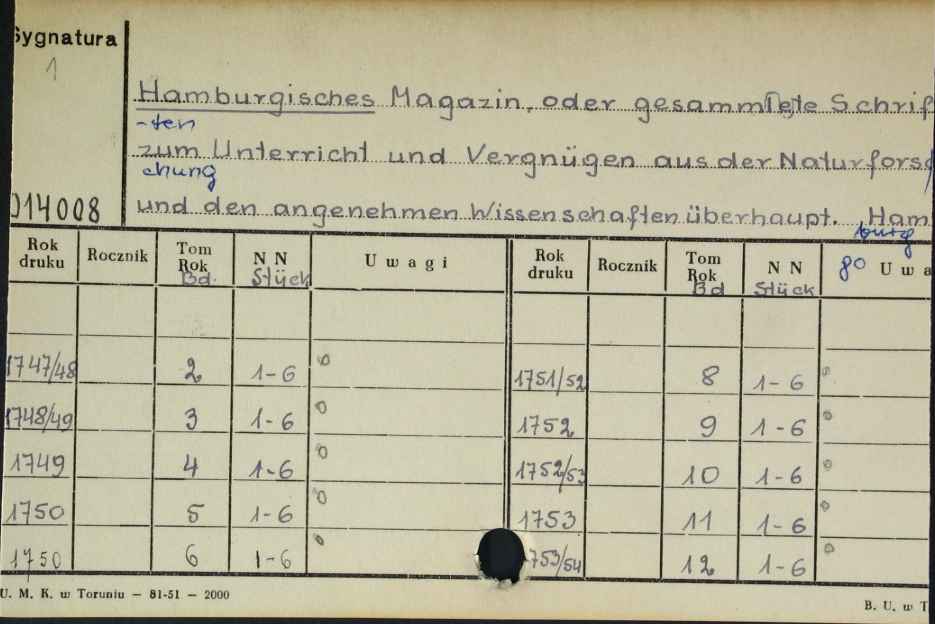 Sygnatura
1
Hamburgisches Magazin, oder gesammlete Schrif
-ten
zum Unterricht und Vergnügen aus der Naturfors
chung
014008
und den angenehmen Wissenschaften überhaupt. Ham
burg
Rok druku Rocznik Tom Rok Bd. N N Stück Uwagi Rok druku Rocznik Tom Rok Bd N N Stück 80 Uwa
1747/48 2 1-6 0 1751/52 8 1-6 0
1748/49 3 1-6 0 1752 9 1-6 0
1749 4 1-6 0 1752/53 10 1-6 0
1750 5 1-6 0 1753 11 1-6 0
1750 6 1-6 0 753/54 12 1-6 0
U. M. K. w Toruniu — 81-51 — 2000
B. U. w T